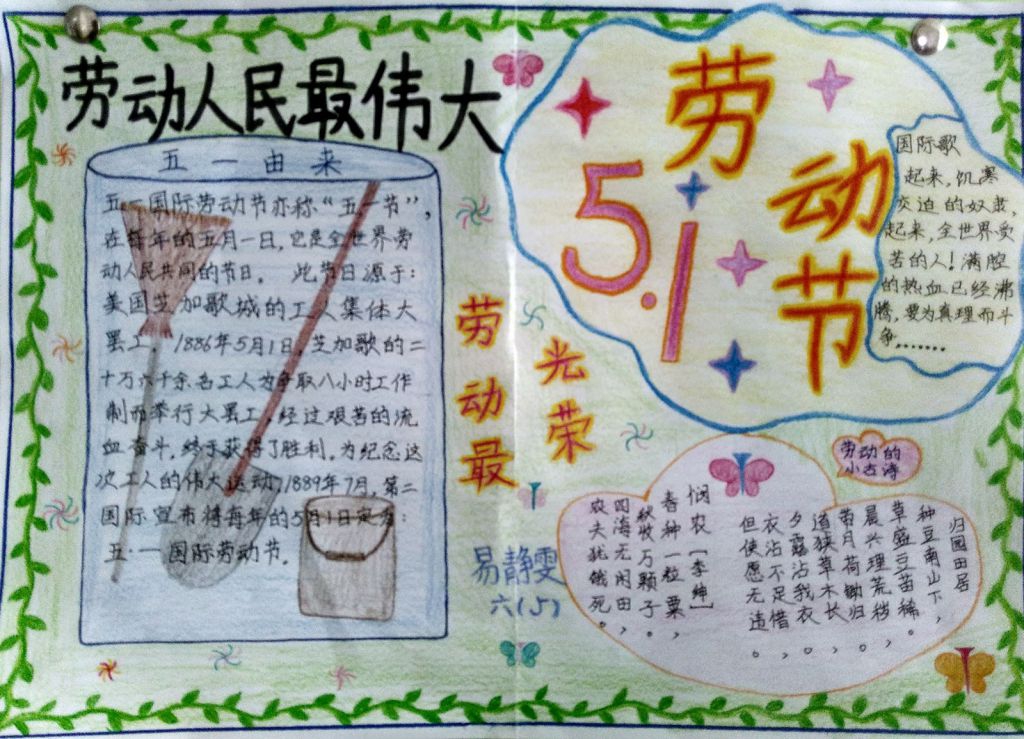 劳动人民最伟大
五一由来
五一国际劳动节亦称“五一节”,
在每年的五月一日,它是全世界劳
动人民共同的节日。 此节日源于:
美国芝加歌城的工人集体大
罢工,1886年5月1日,芝加歌的二
十万六千余名工人为争取八小时工作
制而举行大罢工,经过艰苦的流
血奋斗,终于获得了胜利,为纪念这
次工人的伟大运动,1889年7月,第二
国际宣布将每年的5月1日定为:
五·一国际劳动节。
劳动最
光荣
易静雯
六(5)
劳动节
5.1
国际歌
起来,饥寒
交迫的奴隶,
起来,全世界受
苦的人!满腔
的热血已经沸
腾,要为真理而斗
争,......
劳动的
小古诗
归园田居
种豆南山下,
草盛豆苗稀。
晨兴理荒秽,
带月荷锄归。
道狭草木长,
夕露沾我衣。
衣沾不足惜,
但使愿无违。
悯农[李绅]
春种一粒粟,
秋收万颗子。
四海无闲田,
农夫犹饿死。